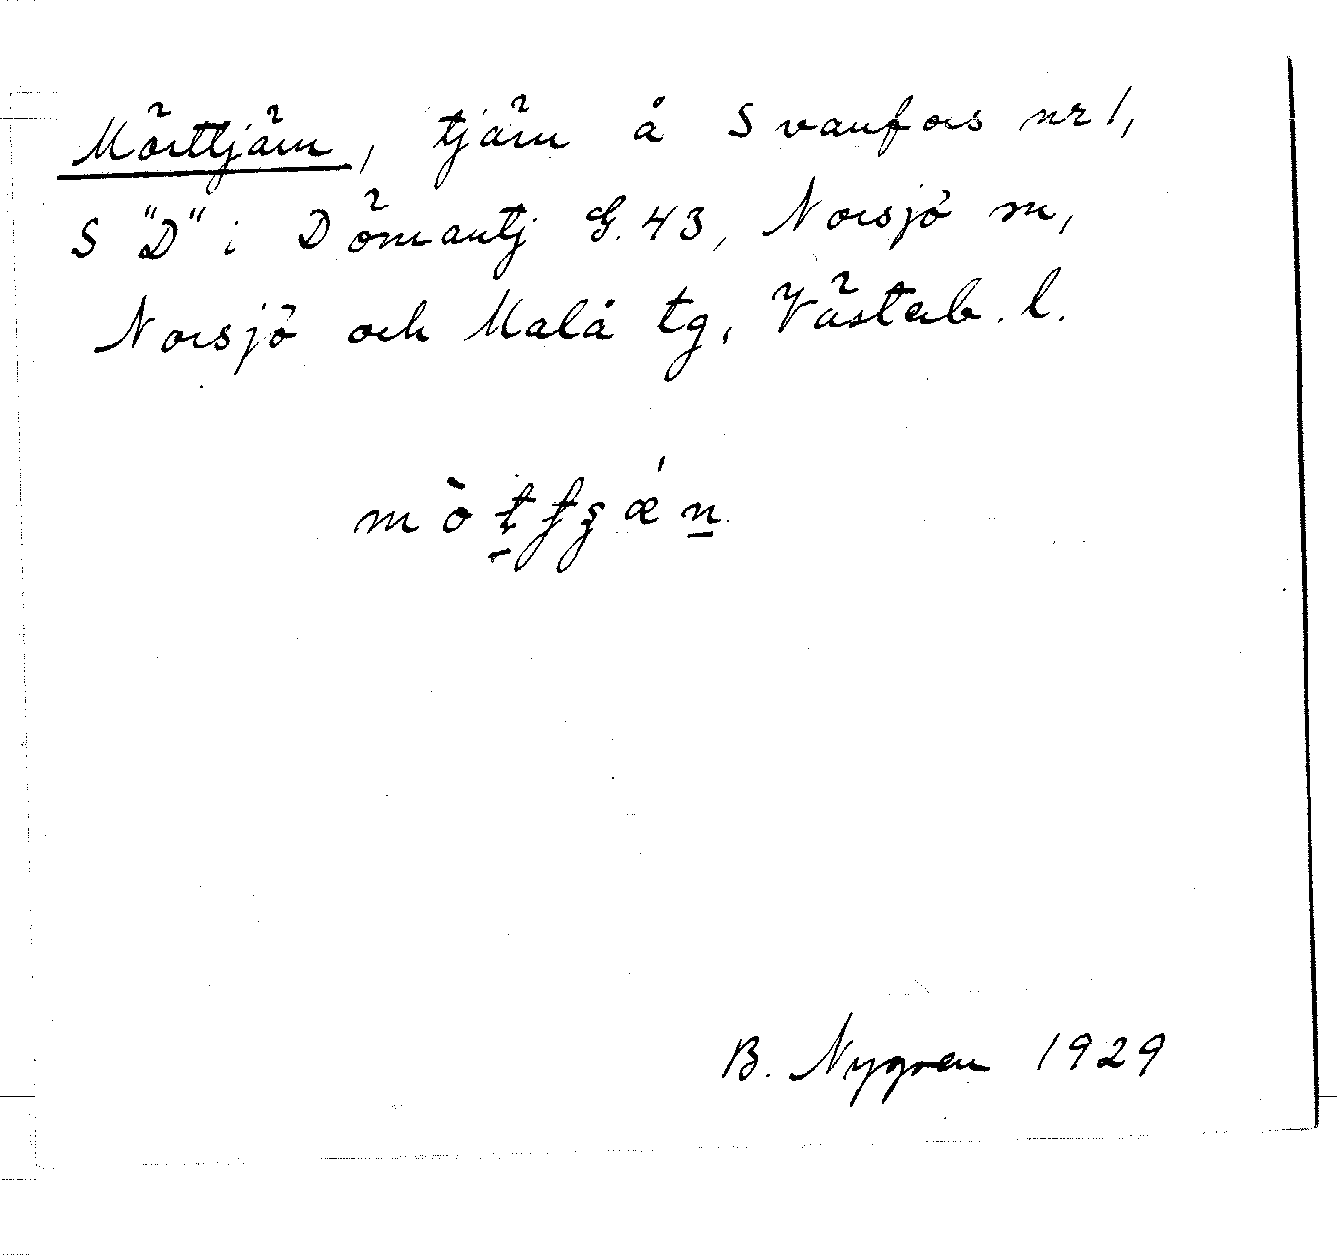 Mörttjärn, tjärn å Svanfors nr 1,
S "D" i Dömantj G. 43, Norsjö sn,
Norsjö och Malå tg, Västerb. l.
B. Nygren 1929